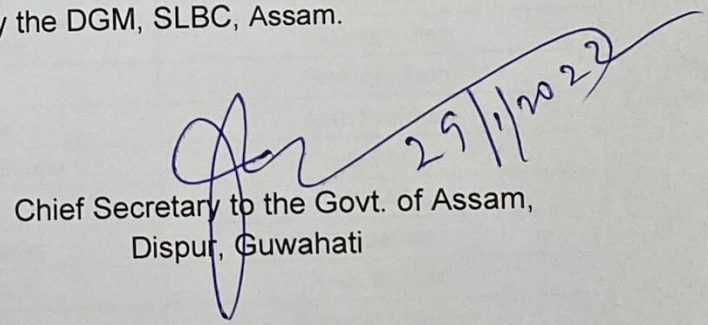 the DGM, SLBC, Assam.
29/1/2022
Chief Secretary to the Govt. of Assam,
Dispur, Guwahati